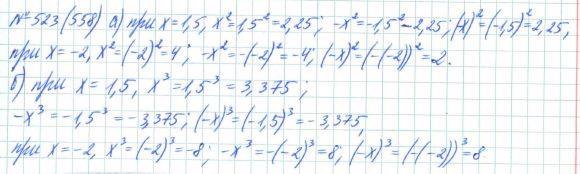 №523(558) а) при x=1,5, x²=1,5²=2,25; -x²=-1,5²-2,25; (-x)²=(-1,5)²=2,25,
при x=-2, x²=(-2)²=4; -x²=-(-2)²=-4; (-x)²=(-(-2))²=2.
б) при x=1,5, x³=1,5³=3,375;
-x³=-1,5³=-3,375; (-x)³=(-1,5)³=-3,375,
при x=-2, x³=(-2)³=-8; -x³=-(-2)³=8; (-x)³=(-(-2))³=8